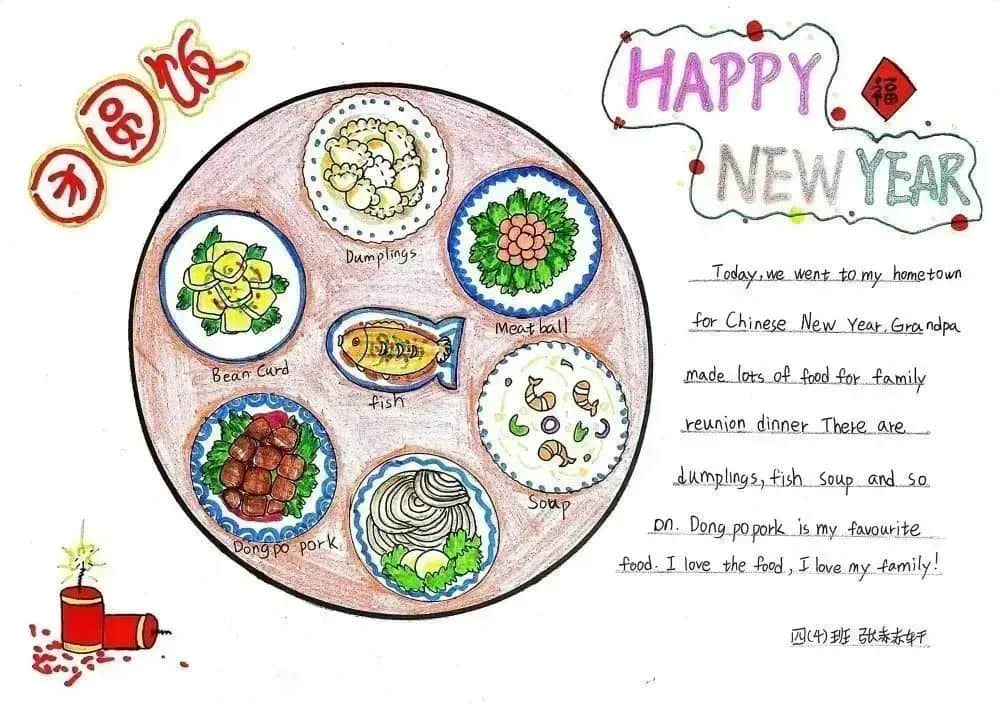 团圆饭
HAPPY
福
NEW YEAR
Dumplings
Meatball
Bean Curd
fish
Soup
Dongpo pork
Today, we went to my hometown
for Chinese New Year. Grandpa
made lots of food for family
reunion dinner There are
dumplings, fish soup and so
on. Dong popork is my favourite
food. I love the food, I love my family!
四(4)班 张赫轩